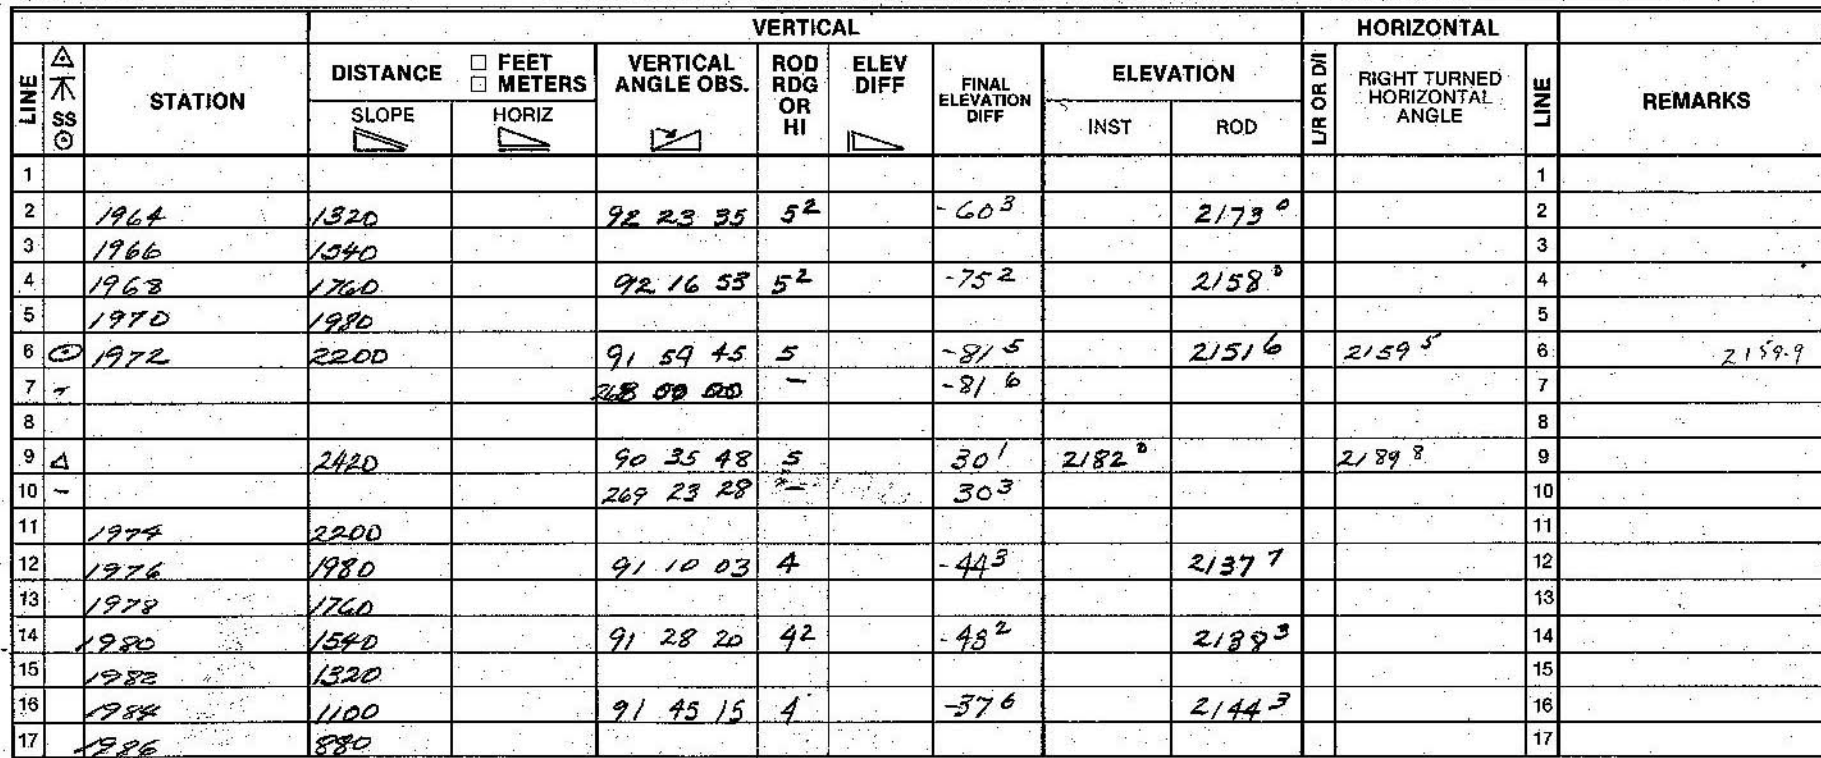 VERTICAL HORIZONTAL
LINE SS STATION DISTANCE □ FEET □ METERS SLOPE HORIZ VERTICAL ANGLE OBS. ROD RDG OR HI ELEV DIFF FINAL ELEVATION DIFF ELEVATION INST ROD L/R OR D/I RIGHT TURNED HORIZONTAL ANGLE LINE REMARKS
1 1
2 1964 1320 92 23 35 5² -60³ 2173⁰ 2
3 1966 1540 3
4 1968 1760 92 16 53 5² -75² 2158⁰ 4
5 1970 1980 5
6 1972 2200 91 59 45 5 -81⁵ 2151⁶ 2159⁵ 6 2159.9
7 - 268 00 00 - -81⁶ 7
8 8
9 △ 2420 90 35 48 5 30¹ 2182⁰ 2189⁸ 9
10 - 269 23 28 - 30³ 10
11 1974 2200 11
12 1976 1980 91 10 03 4 -44³ 2137⁷ 12
13 1978 1760 13
14 1980 1540 91 28 20 4² -43² 2138³ 14
15 1982 1320 15
16 1984 1100 91 45 15 4 -37⁶ 2144³ 16
17 1986 880 17